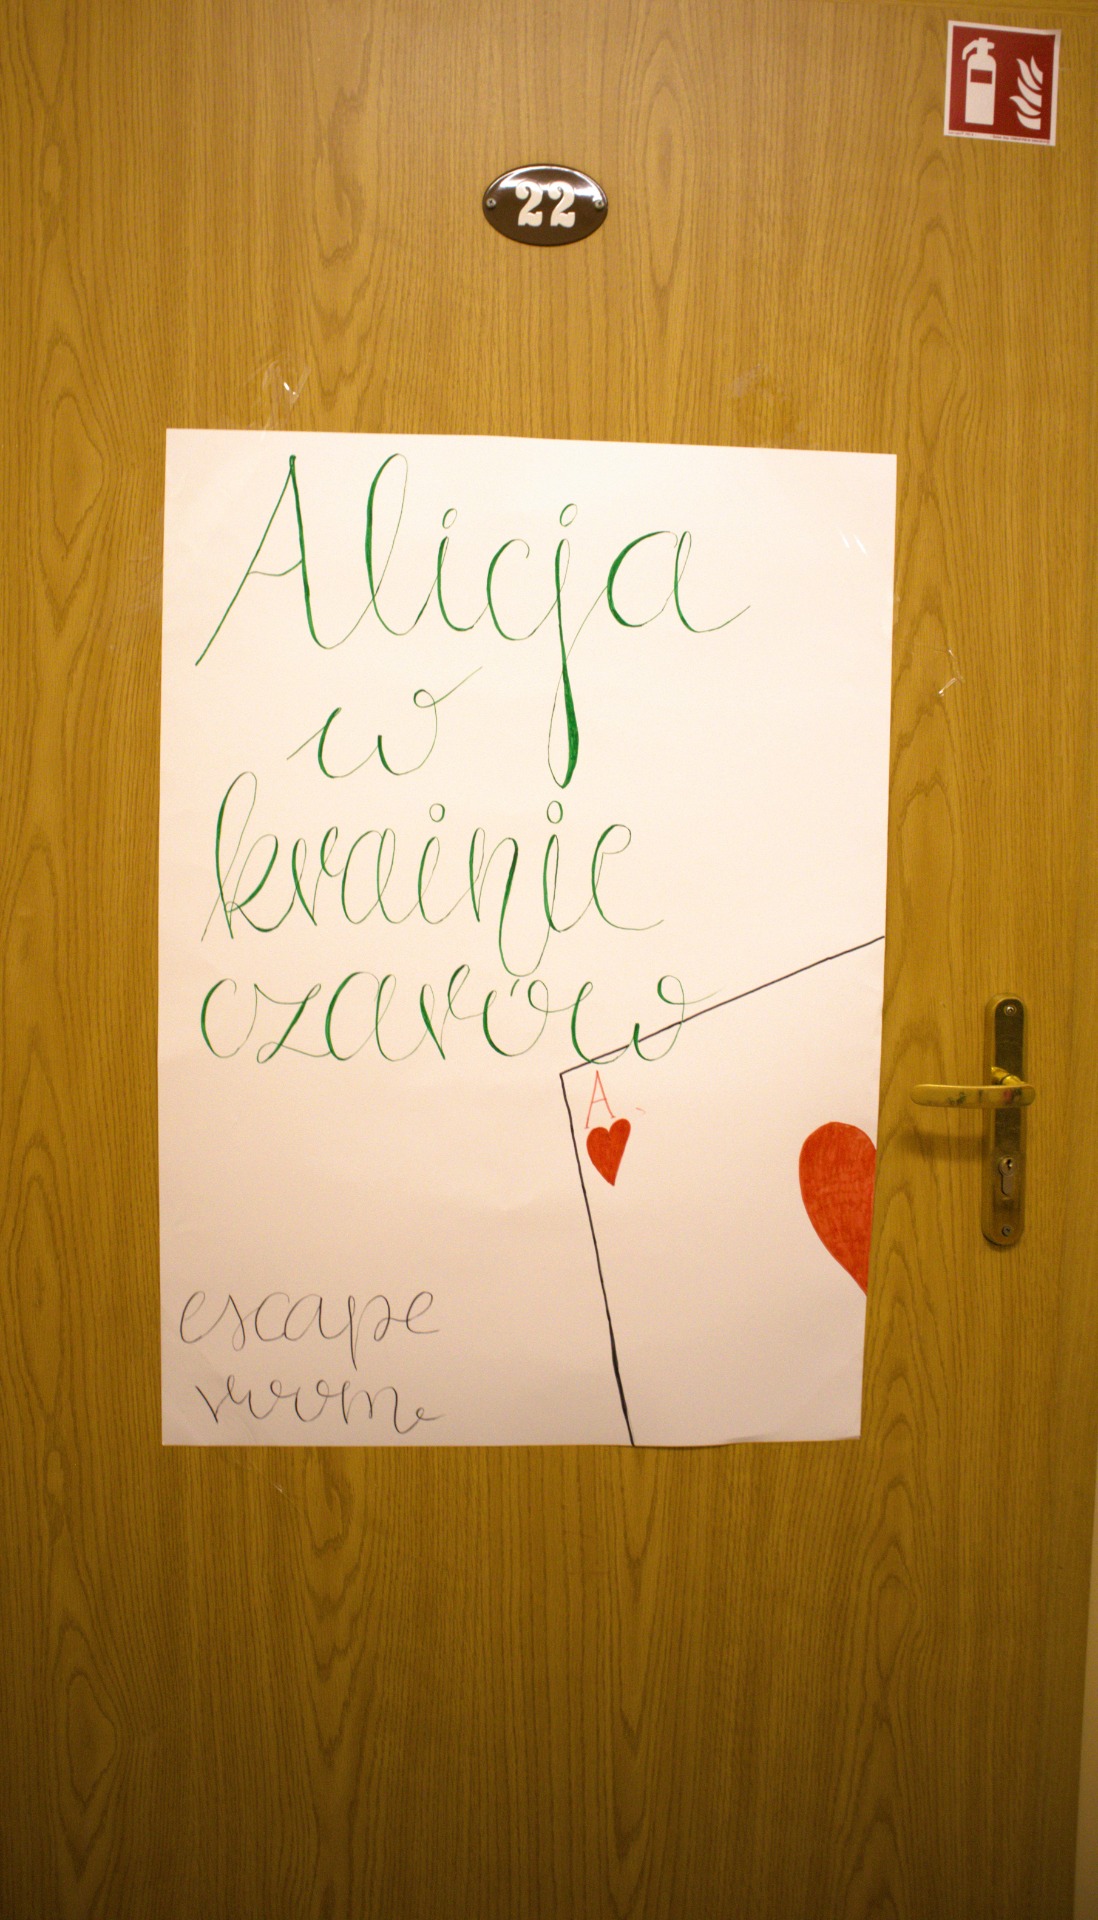 22
Alicja
w
krainie
czarów
A
escape
room